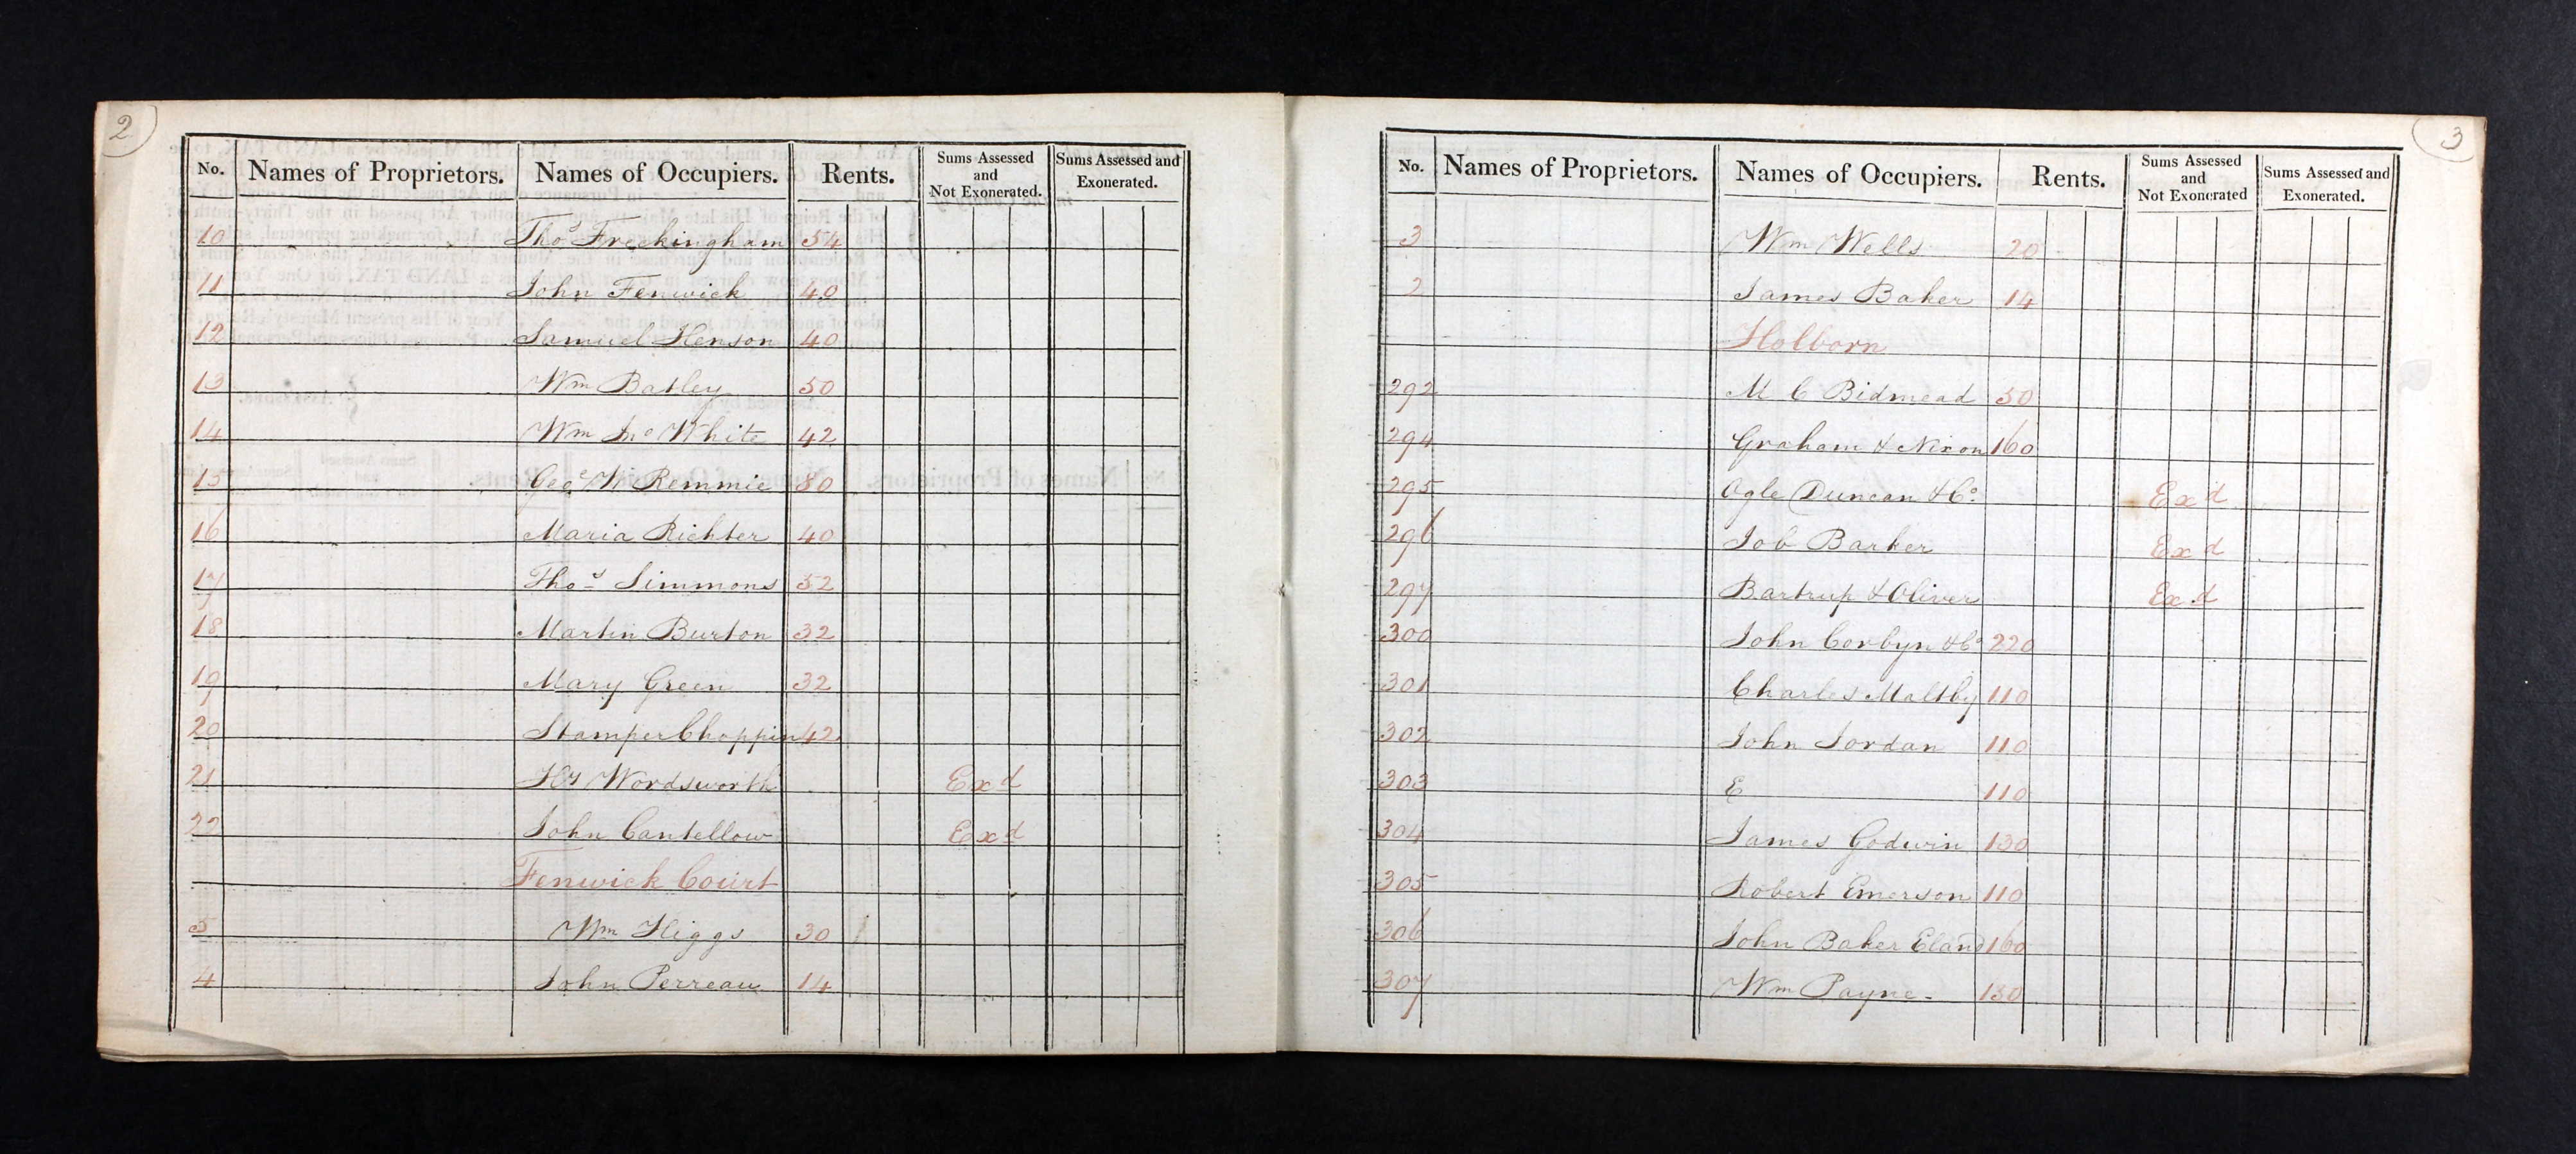 2
No. Names of Proprietors. Names of Occupiers. Rents. Sums Assessed and Not Exonerated. Sums Assessed and Exonerated.
10 Thos Freckingham 54
11 John Fenwick 40
12 Samuel Henson 40
13 Wm Batley 50
14 Wm Jno White 42
15 Geo W Remmie 80
16 Maria Richter 40
17 Thos Simmons 52
18 Martin Burton 32
19 Mary Green 32
20 Stamper Choppin 42
21 Hy Wordsworth Exd
22 John Cantellow Exd
Fenwick Court
5 Wm Higgs 30
4 John Perreau 14
3
No. Names of Proprietors. Names of Occupiers. Rents. Sums Assessed and Not Exonerated Sums Assessed and Exonerated.
3 Wm Wells 20
2 James Baker 14
Holborn
292 M C Bidmead 50
294 Graham & Nixon 160
295 Ogle Duncan & Co. Exd
296 Job Barker Exd
297 Bartrup & Oliver Exd
300 John Corbyn & Co 220
301 Charles Maltby 110
302 John Jordan 110
303 E 110
304 James Godwin 130
305 Robert Emerson 110
306 John Baker Eland 160
307 Wm Payne - 130